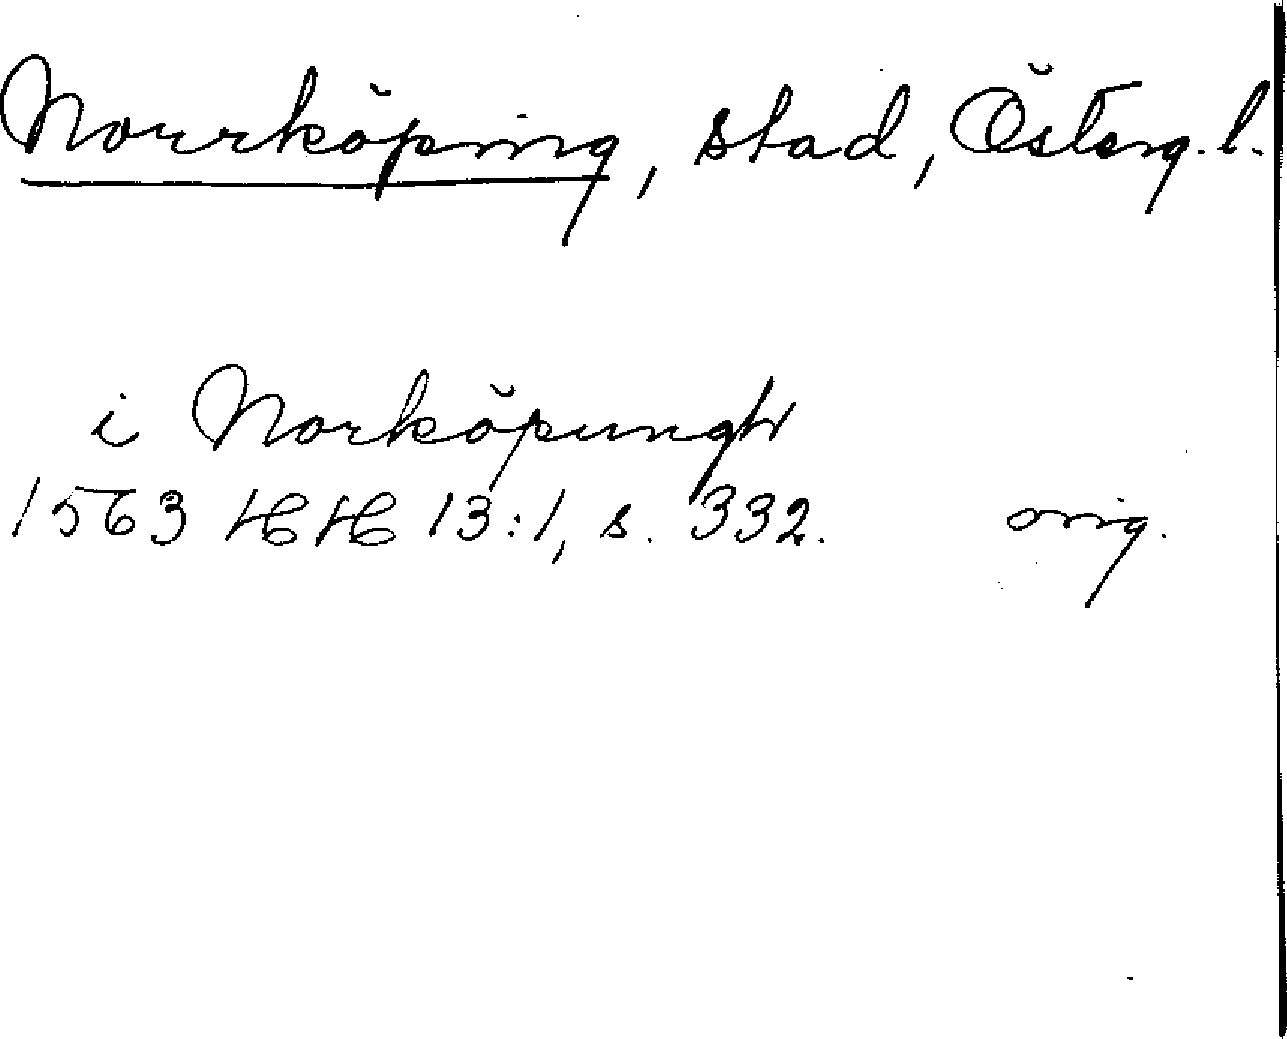 Norrköping, stad, Österg.l.
i Norköpungh
1563 HH 13:1, s. 332. orig.